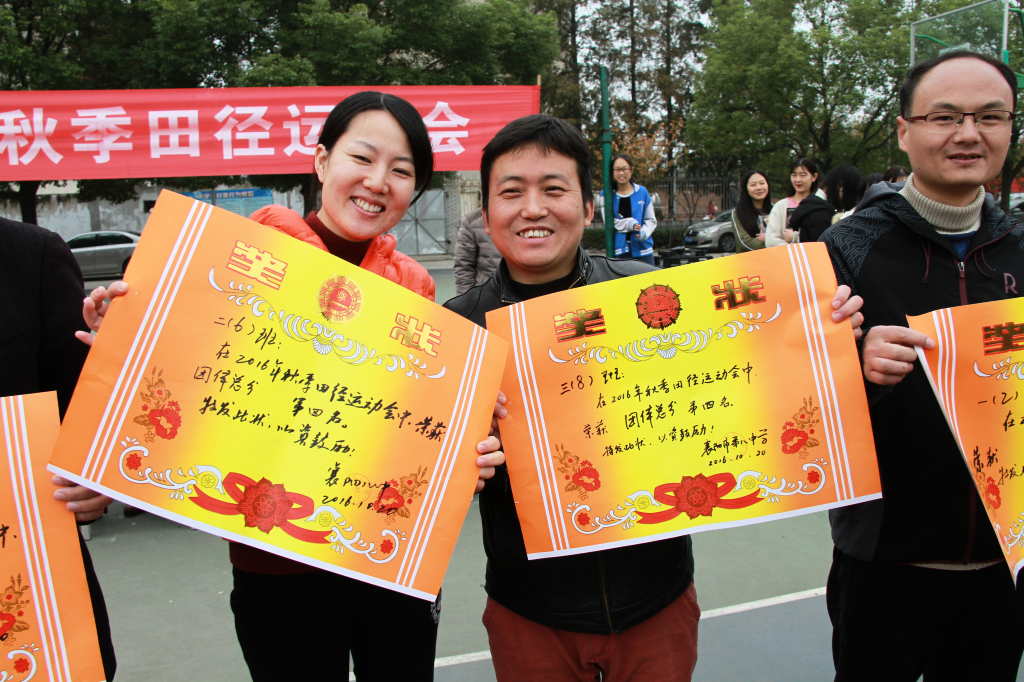 秋季田径运动会
奖状
二(6)班:
在2016年秋季田径运动会中,荣获
团体总分 第四名。
特发此状,以资鼓励!
襄阳八中
2016.10.20
奖状
三(8)班:
在2016年秋季田径运动会中,
荣获 团体总分 第四名。
特发此状,以资鼓励!
襄阳市第八中学
2016.10.20
奖
一(2)
在2
荣获
特发
中.